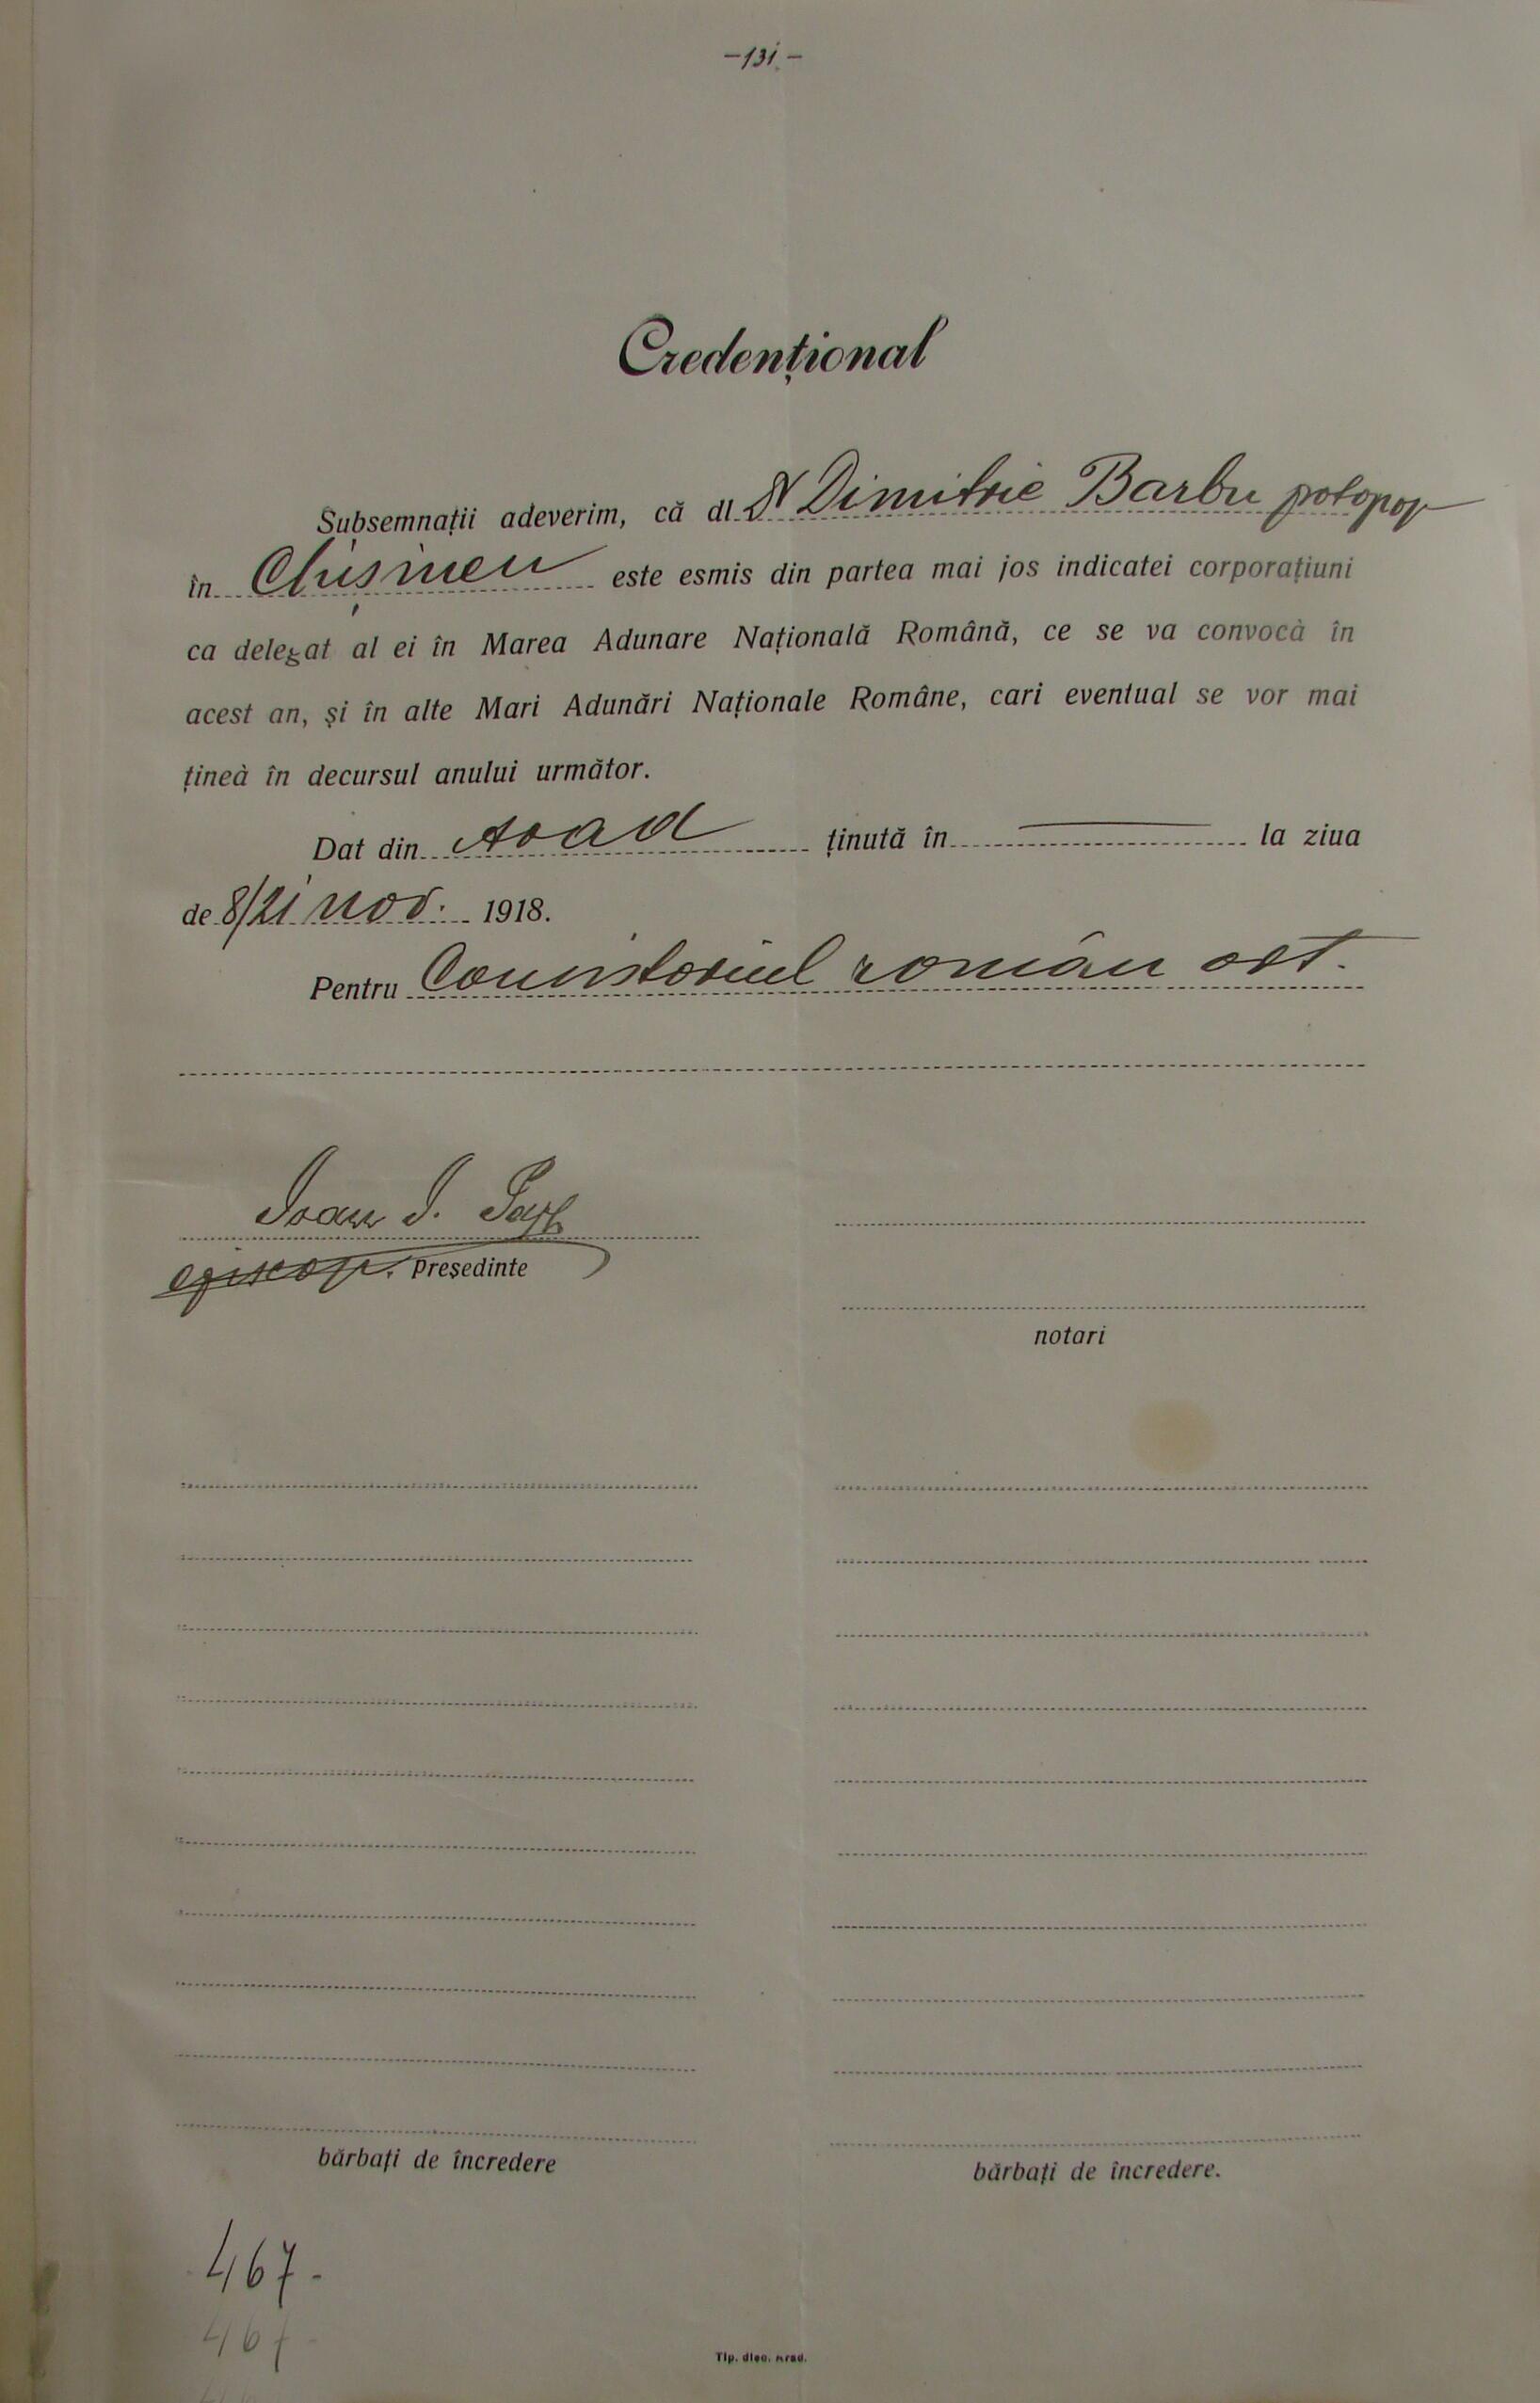 –131.–
Credențional
Subsemnații adeverim, că dl Dr Dimitrie Barbu protopop
în Chișineu este esmis din partea mai jos indicatei corporațiuni
ca delegat al ei în Marea Adunare Națională Română, ce se va convocà în
acest an, și în alte Mari Adunări Naționale Române, cari eventual se vor mai
țineà în decursul anului următor.
Dat din Arad ținută în — la ziua
de 8/21 nov. 1918.
Pentru Consistoriul român ort.
Ioan I. Papp
episcop. Președinte
notari
bărbați de încredere
bărbați de încredere.
467-
467-
Tip. diec. Arad.